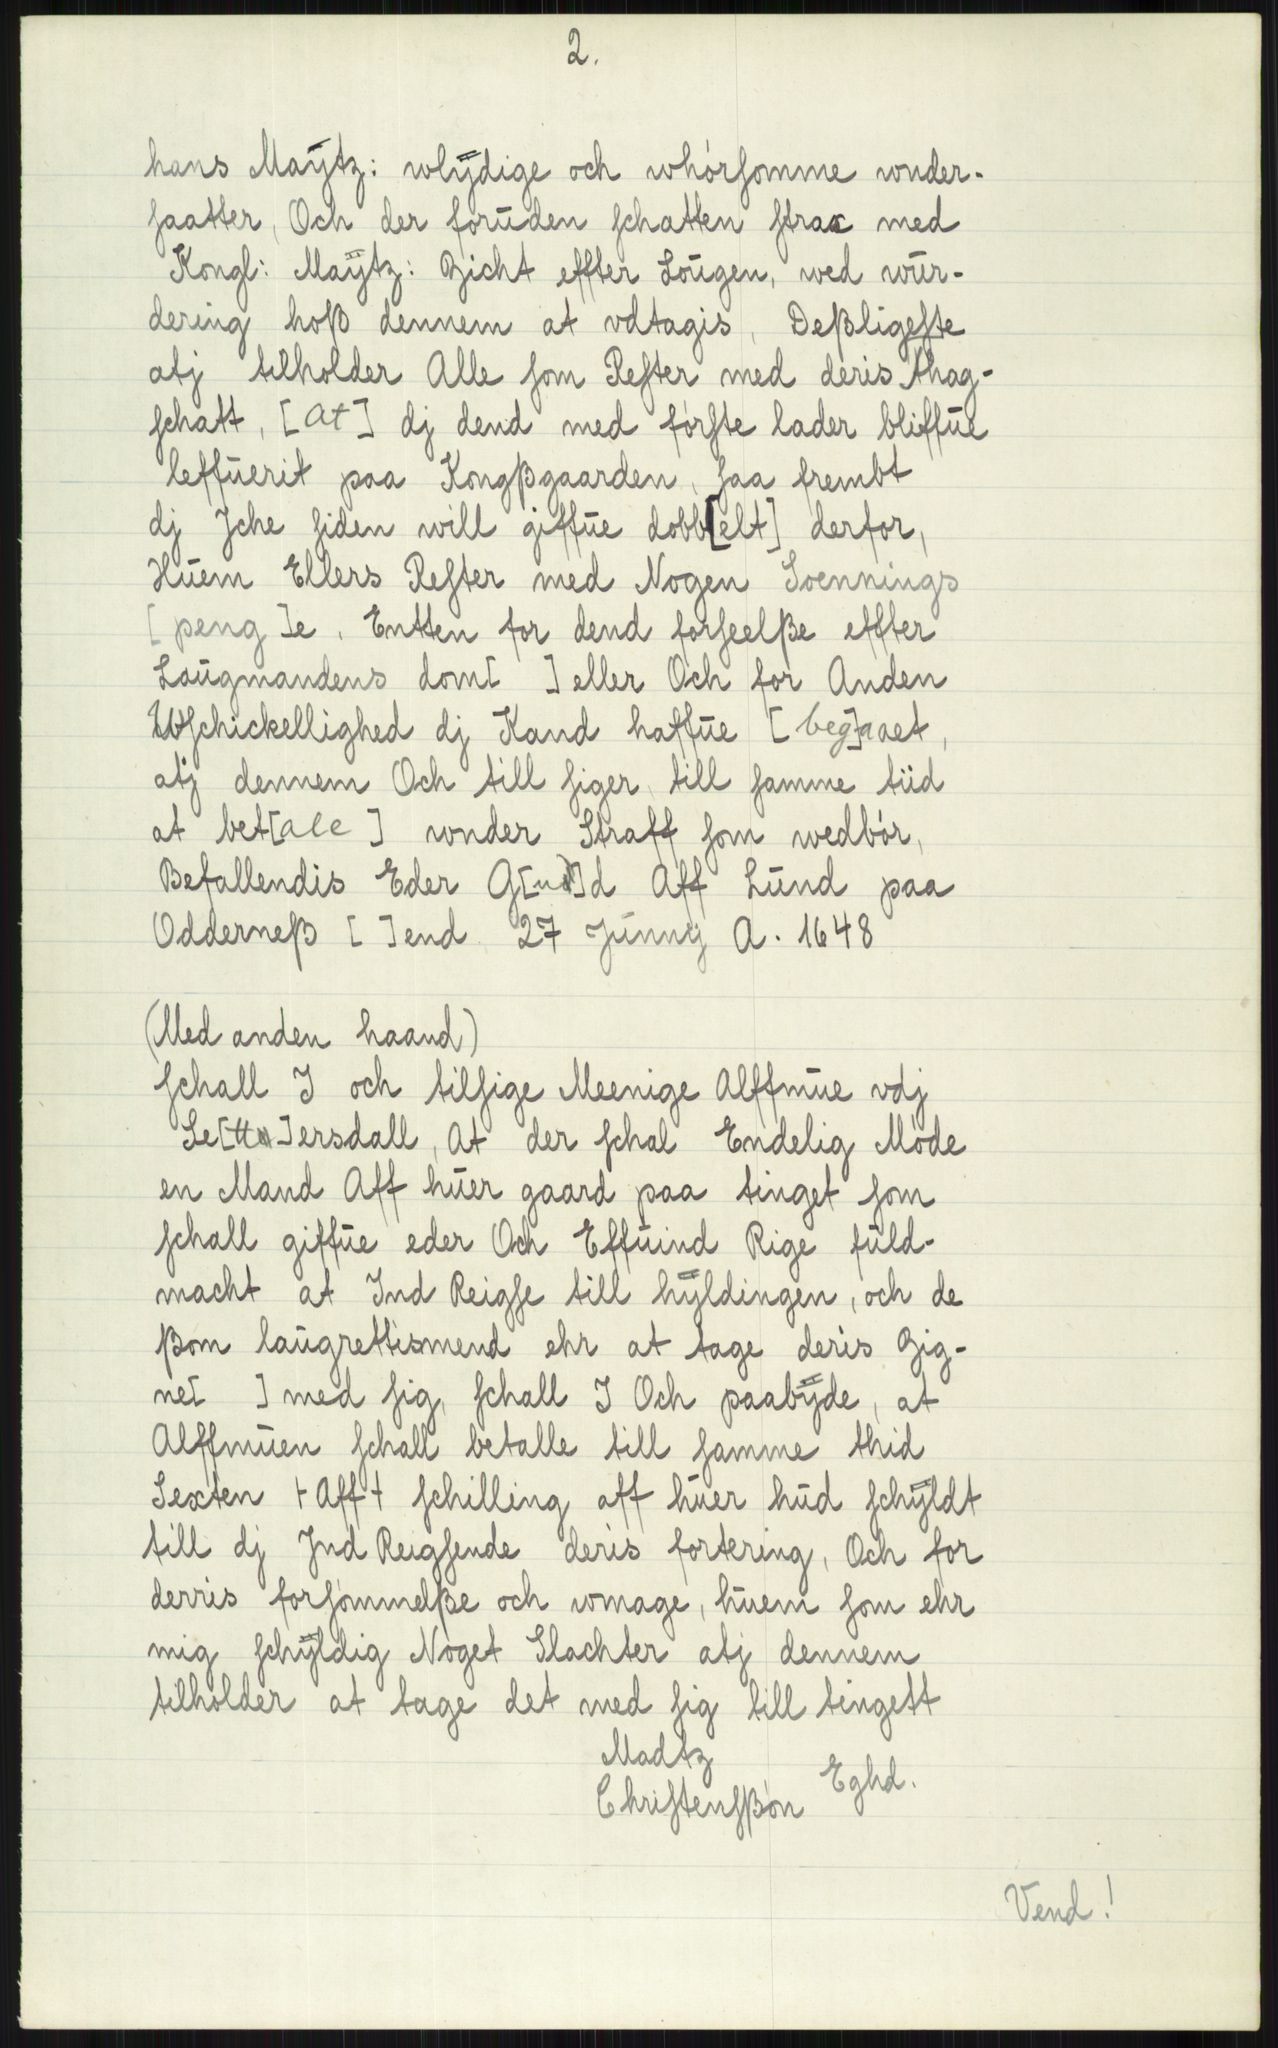 2.
hans Maÿtz: wlÿdige och whórsomme wnder-
saatter, Och der forūden schatten strax med
Kongl: Maÿtz: Bicht effter Lougen, wed wūr-
dering hoß dennem at vdtagis, Deßligeste
atj tilholder Alle som Rester med deris thag-
schatt, [at] dj dend med første lader bliffūe
leffūerit paa Kongßgaarden, saa frembt
dj Jche siden will giffūe dobb[elt] derfor,
Hūem Ellers Rester med Nogen Soennings
[peng]e, Entten for dend forseelße effter
Laūgmandens dom[ ] eller Och for Anden
Uschickellighed dj Kand haffūe [beg]aaet,
atj dennem Och till siger till samme tiid
at bet[ale ] wnder Straff som wedbór,
Befallendis Eder G[ud]d Aff Lūnd paa
Odderneß [ ]end 27 Jūnnÿ A. 1648
(Med anden haand)
schall I och tilsige Meenige Alffmūe vdj
Se[tt]ersdall, At der schal Endelig Móde
en Mand Aff hūer gaard paa tinget som
schall giffūe eder Och Effūind Rige fūld-
macht at Ind Reigse till hÿldingen, och de
ßom laūgrettismend ehr at tage deris Zig-
ne[ ] med sig, schall I Och paabÿde, at
Alffmūen schall betalle till samme thid
Sexten + Aff + schilling aff hūer hūd schÿldt
till dj Jnd Reigsende deris fortering, Och for
derris forsómmelße och wmage, hūem som ehr
mig schÿldig Noget Slachter atj dennem
tilholder at tage det med sig till tingett
Madtz
Christensßón Eghd.
Vend!